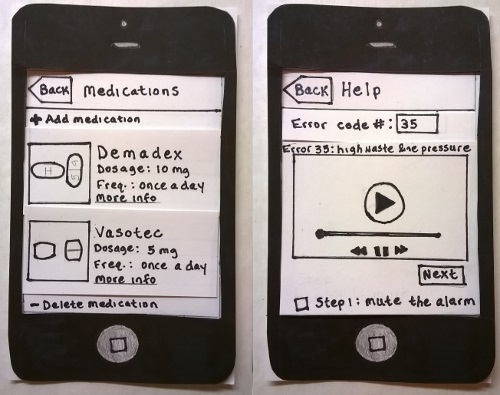 Back Medications
+ Add medication
Demadex
Dosage: 10 mg
Freq.: once a day
More info
Vasotec
Dosage: 5 mg
Freq.: once a day
More info
- Delete medication
Back Help
Error code #: 35
Error 35: high waste line pressure
Next
Step 1: mute the alarm